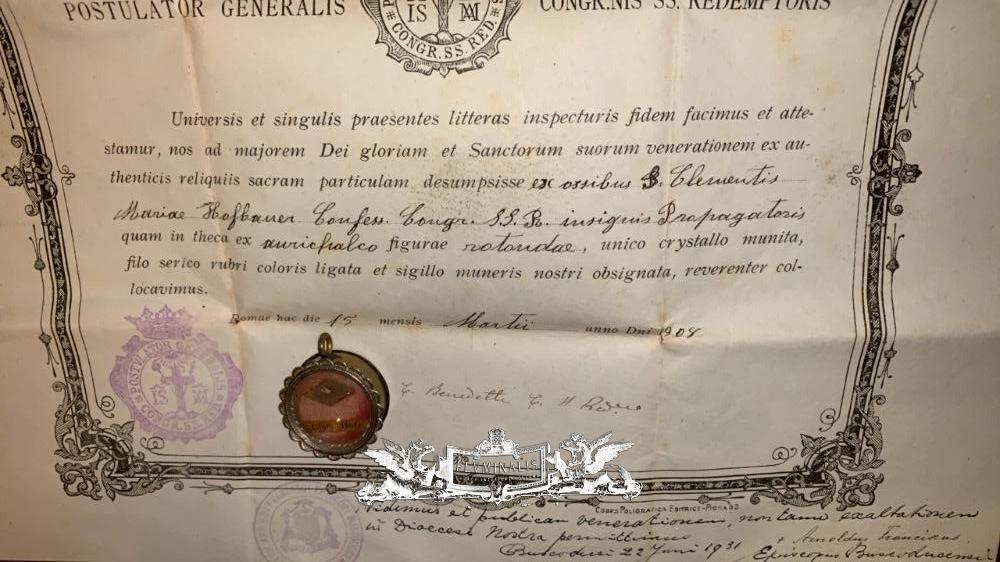 POSTULATOR GENERALIS
CONGR.NIS SS. REDEMPTORIS
IS
CONGR. SS. RED.
Universis et singulis praesentes litteras inspecturis fidem facimus et atte-
stamur, nos ad majorem Dei gloriam et Sanctorum suorum venerationem ex au-
thenticis reliquiis sacram particulam desumpsisse ex ossibus S. Clementis
Mariae Hofbauer Confess. Congr. SS. R. insignis Propagatoris
quam in theca ex aurichalco figurae rotondae, unico crystallo munita,
filo serico rubri coloris ligata et sigillo muneris nostri obsignata, reverenter col-
locavimus.
Romae hac die 15 mensis Martii anno Dni 1908
POSTULATOR GENERALIS
CONGR. SS. RED.
Benedetti
PLUVINALIS
Vidimus et publicam venerationem, non tamen exaltationem
in Dioecesi Nostra permittimus
Buscoduci 22 Juni 1931
+ Arnoldus Franciscus
Episcopus Buscoducensis